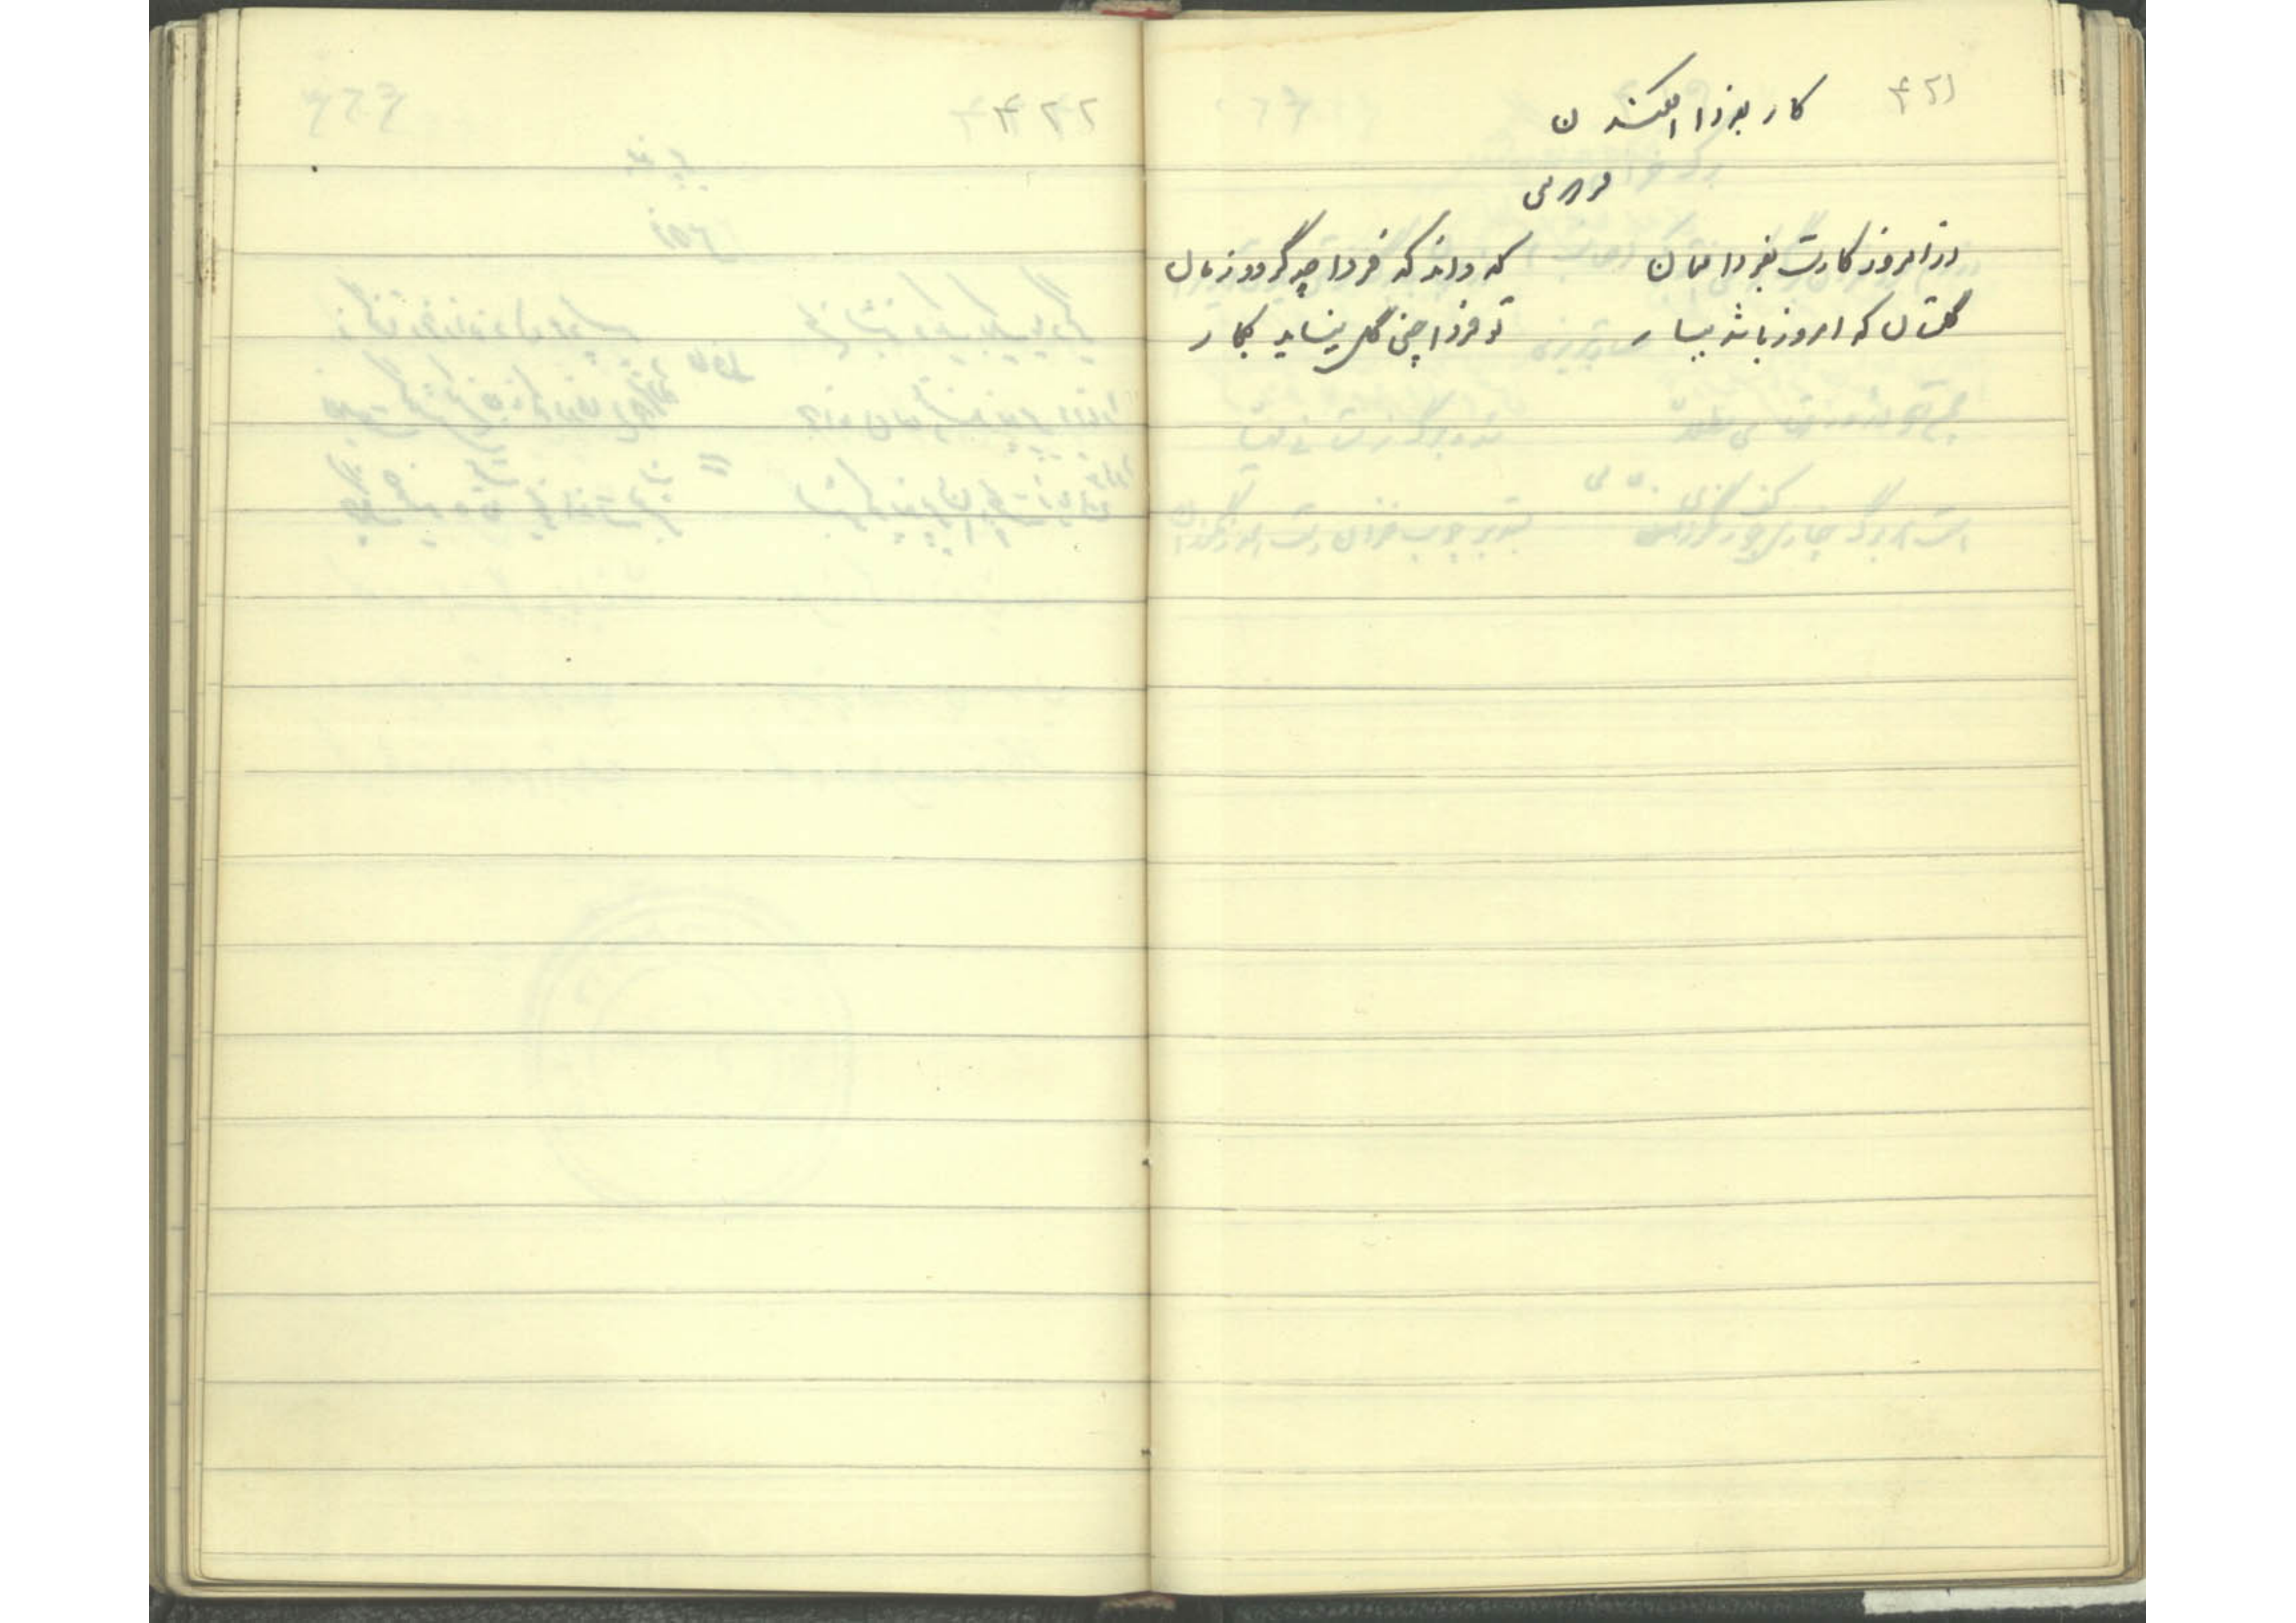 ۴۲۱
کار بفردا افکندن
فردوسی
از امروز کارت بفردا ممان که داند که فردا چه گردد زمان
گلستان که امروز باشد ببار تو فردا چنی گل نیاید بکار
۴۲۲